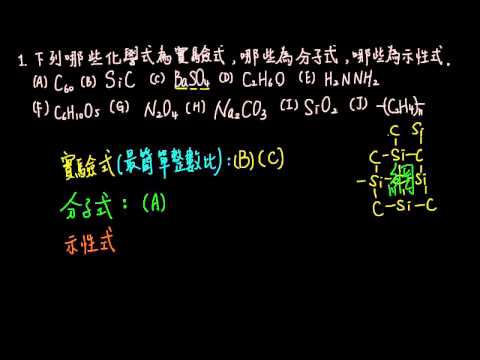 1. 下列哪些化學式為實驗式，哪些為分子式，哪些為示性式.
(A) C₆₀ (B) SiC (C) BaSO₄ (D) C₂H₆O (E) H₂NNH₂
(F) C₆H₁₀O₅ (G) N₂O₄ (H) Na₂CO₃ (I) SiO₂ (J) -(C₂H₄)ₙ-
實驗式(最簡單整數比):(B)(C)
分子式: (A)
示性式
C Si
C-Si-C
-Si- 網 Si-
C-Si-C